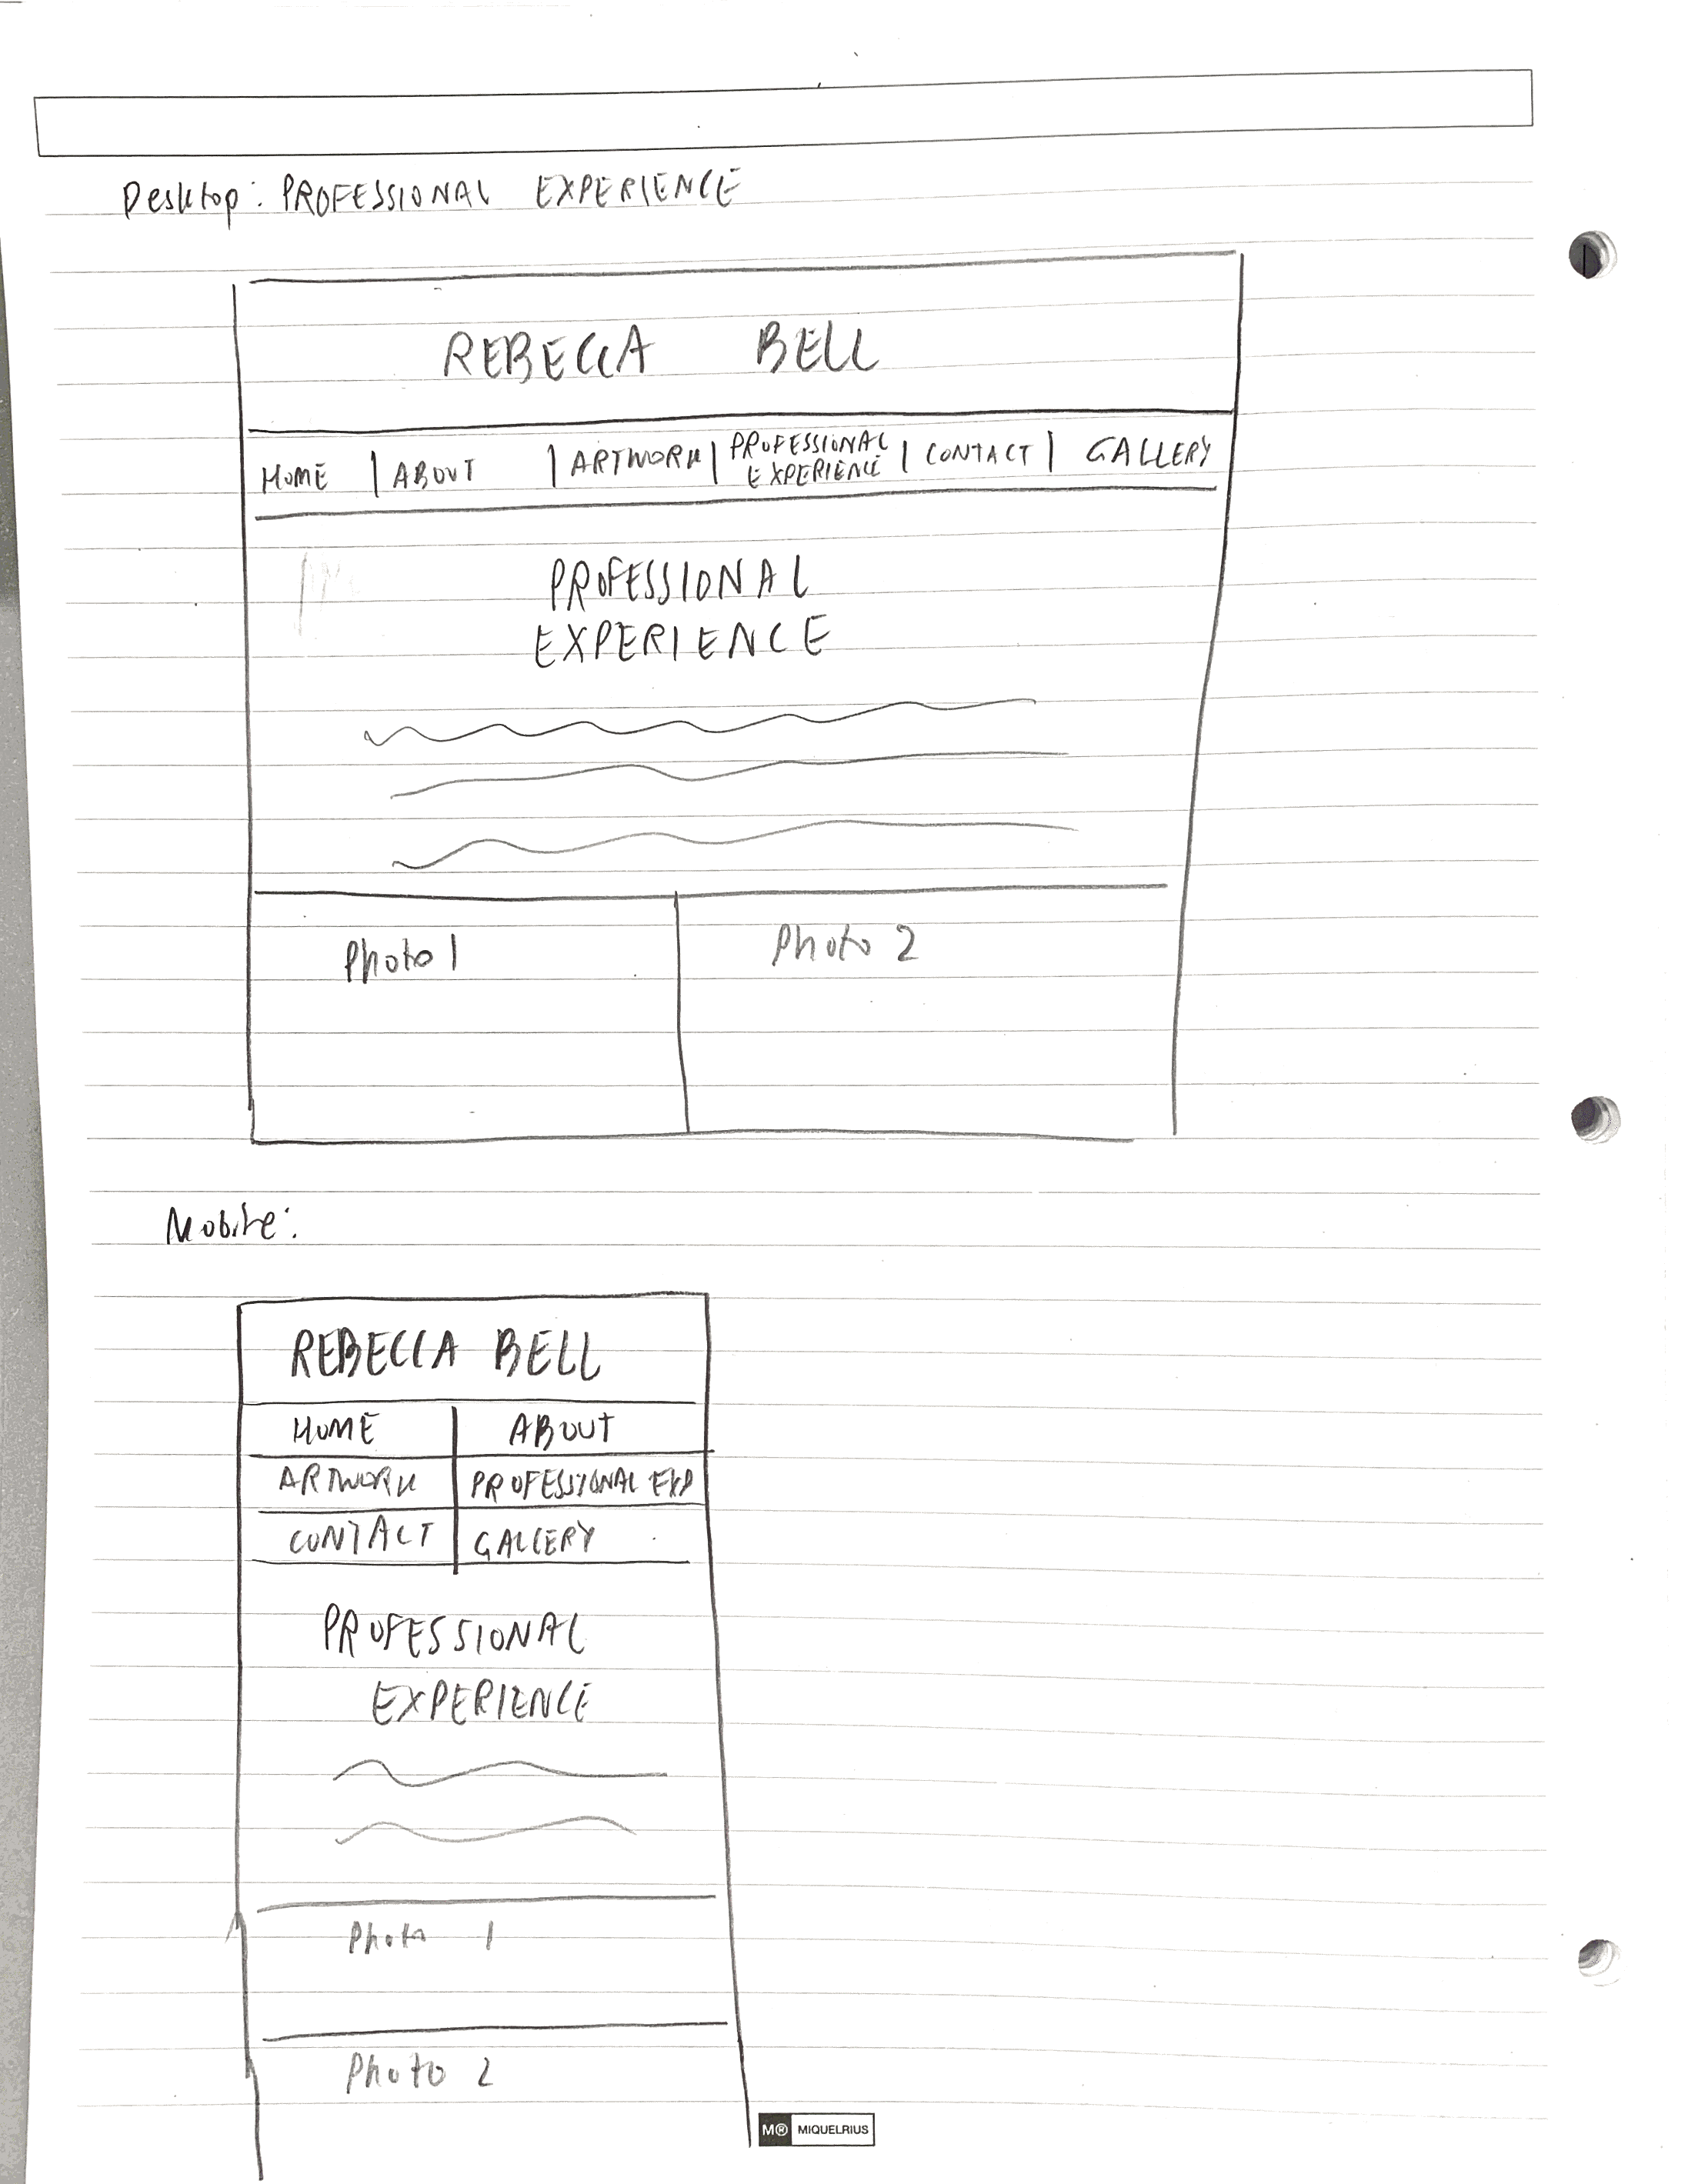 Desktop: PROFESSIONAL EXPERIENCE
REBECCA BELL
HOME | ABOUT | ARTWORK | PROFESSIONAL EXPERIENCE | CONTACT | GALLERY
PROFESSIONAL
EXPERIENCE
Photo 1
Photo 2
Mobile:
REBECCA BELL
HOME
ABOUT
ARTWORK
PROFESSIONAL EXP
CONTACT
GALLERY
PROFESSIONAL
EXPERIENCE
Photo 1
Photo 2
M® MIQUELRIUS